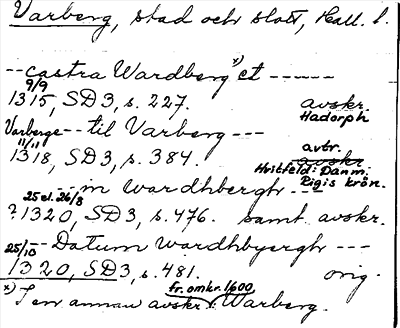 Varberg, stad och slott, Hall. l.
-- castra Wardberg x) et ------
9/9
1315, SD3, s. 227. avskr. Hadorph
Varberge -- til Varberg ---
11/11 avtr.
1318, SD3, s. 384. avskr Hvitfeld: Danm. Rigis krön.
-- in wardhbergh ---
25 el. 26/8
? 1320, SD3, s. 476. samt. avskr.
-- Datum wardhbyergh ---
25/10
1320, SD3, s. 481. orig.
x) I en annan avskr. fr. omkr. 1600, Warberg.